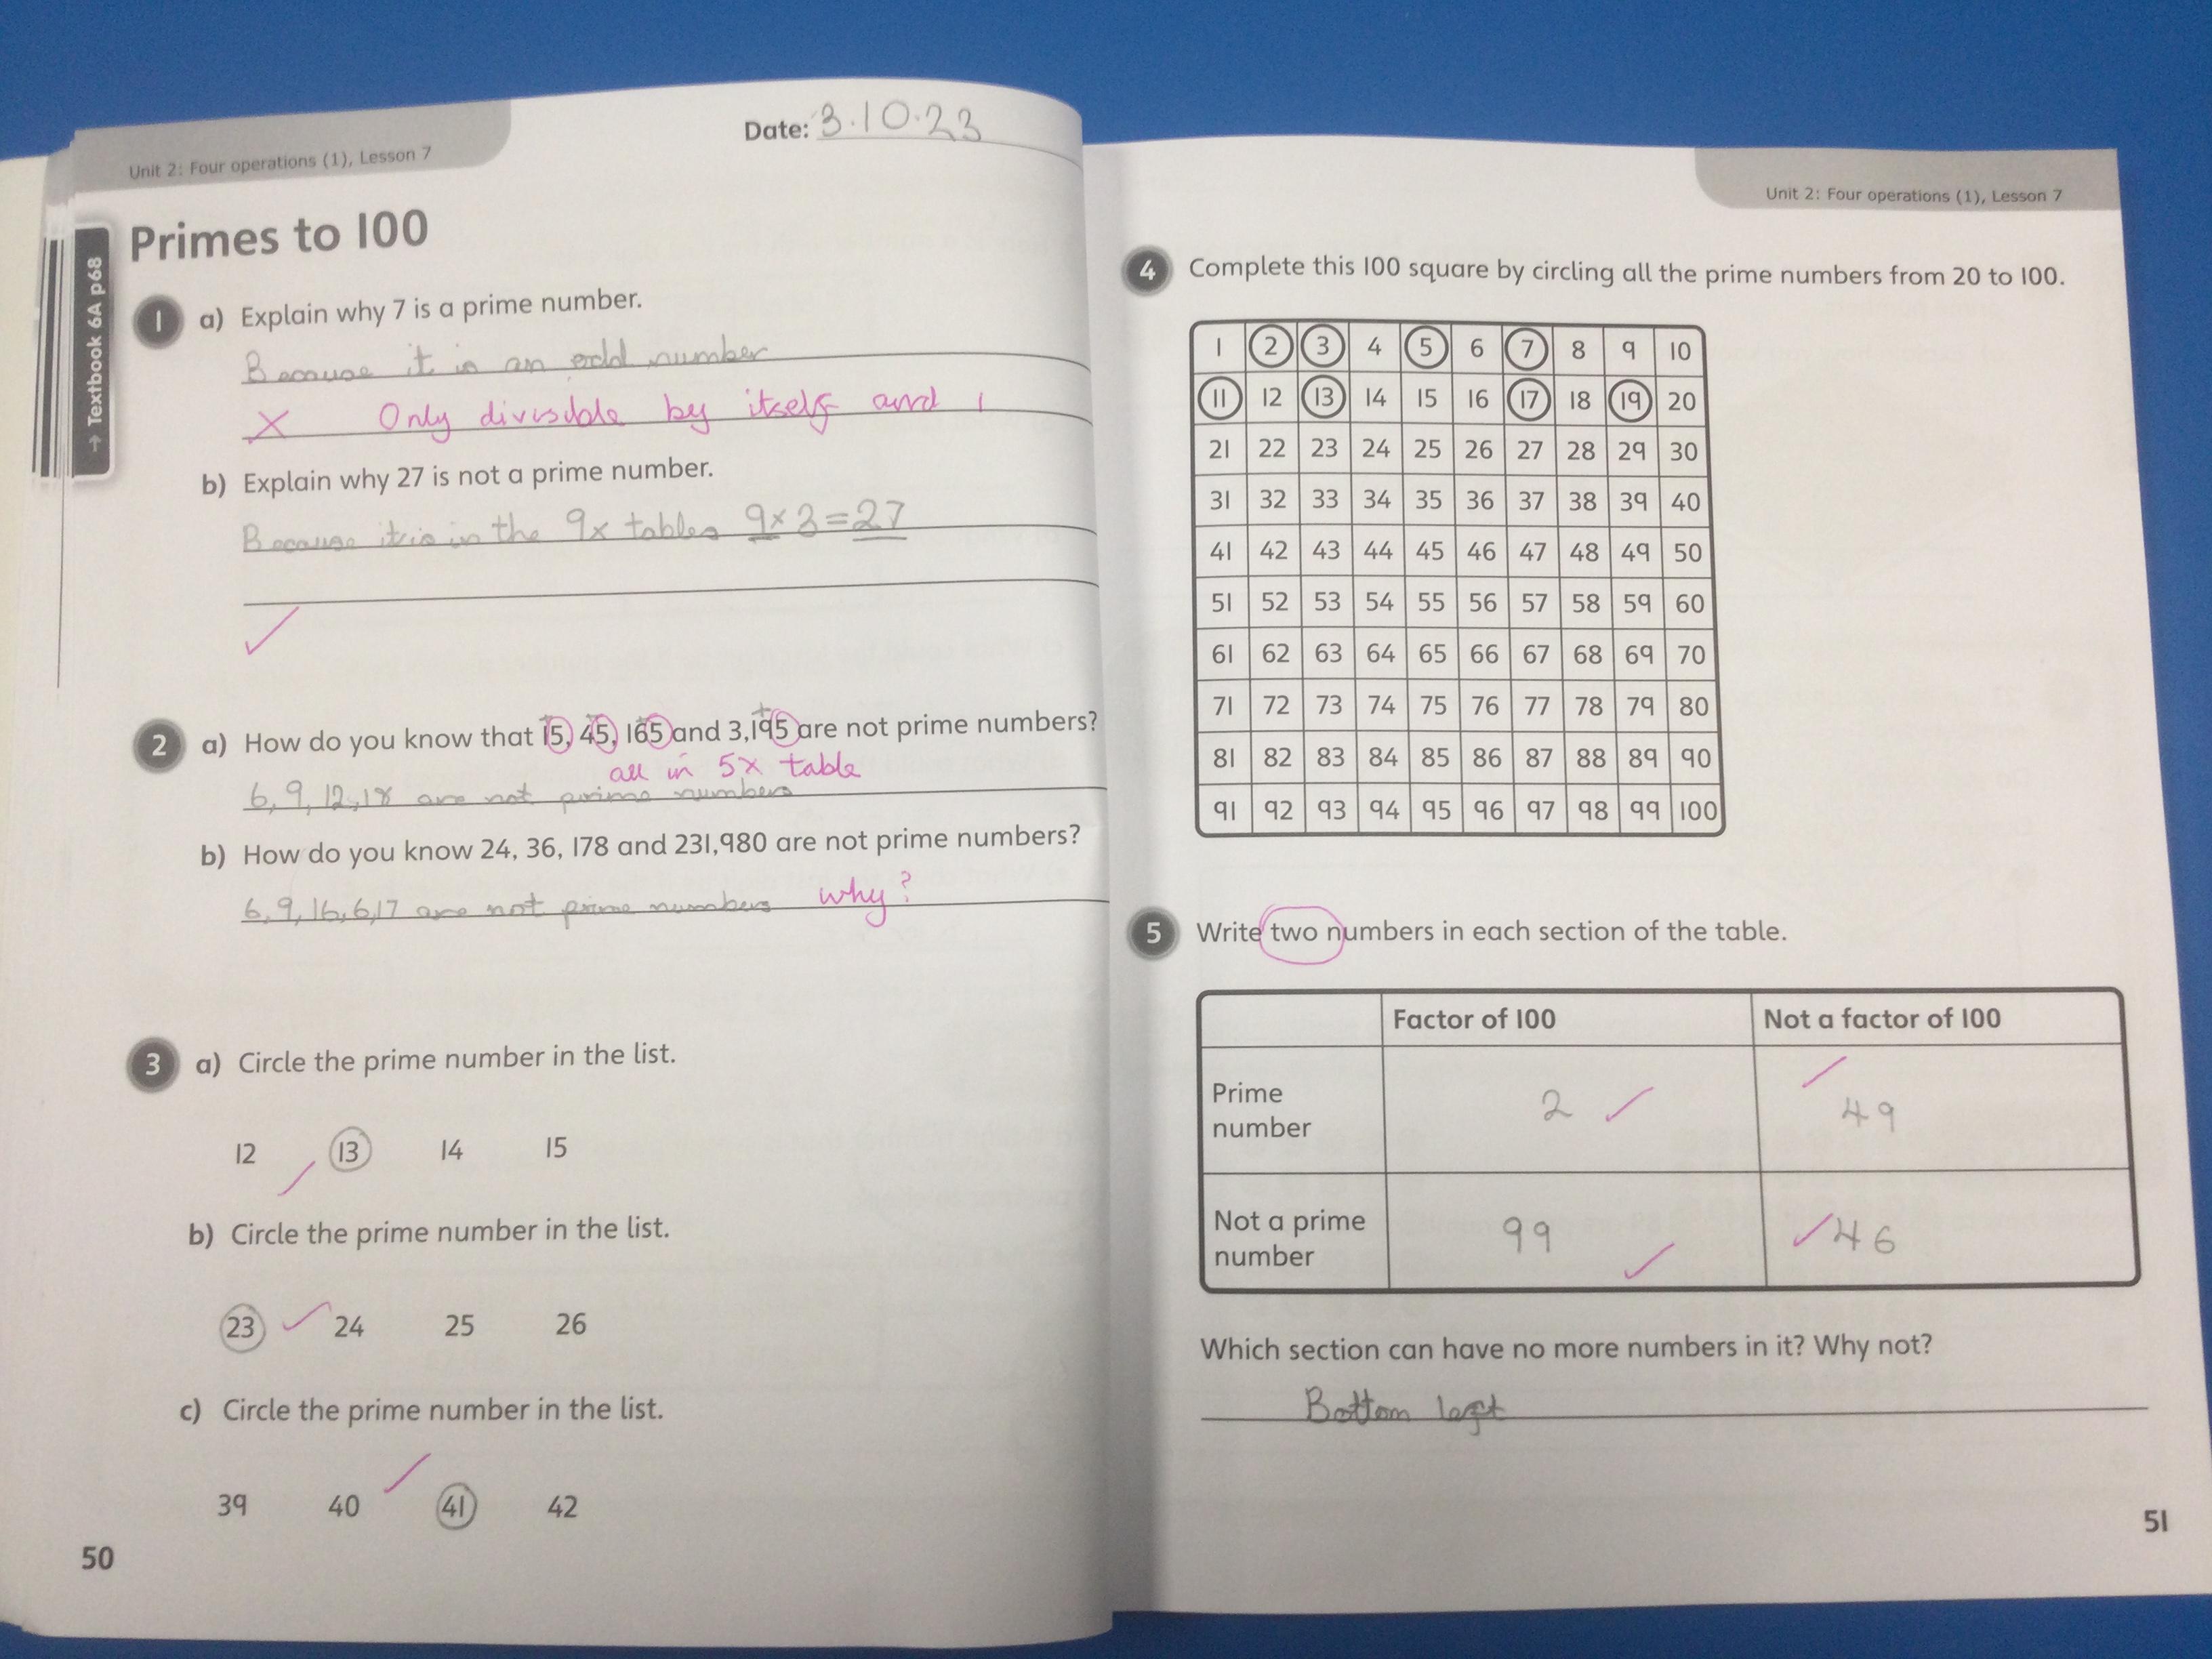 Date: 3.10.23
Unit 2: Four operations (1), Lesson 7
→ Textbook 6A p68
Primes to 100
1 a) Explain why 7 is a prime number.
Because it is an odd number
X Only divisible by itself and 1
b) Explain why 27 is not a prime number.
Because it is in the 9x tables 9x3=27
✓
2 a) How do you know that 15, 45, 165 and 3,195 are not prime numbers?
all in 5x table
6, 9, 12, 18 are not prime numbers
b) How do you know 24, 36, 178 and 231,980 are not prime numbers?
6, 9, 16, 6, 17 are not prime numbers why?
3 a) Circle the prime number in the list.
12 13 14 15
b) Circle the prime number in the list.
23 ✓ 24 25 26
c) Circle the prime number in the list.
39 40 ✓ 41 42
50
Unit 2: Four operations (1), Lesson 7
4 Complete this 100 square by circling all the prime numbers from 20 to 100.
1 2 3 4 5 6 7 8 9 10
11 12 13 14 15 16 17 18 19 20
21 22 23 24 25 26 27 28 29 30
31 32 33 34 35 36 37 38 39 40
41 42 43 44 45 46 47 48 49 50
51 52 53 54 55 56 57 58 59 60
61 62 63 64 65 66 67 68 69 70
71 72 73 74 75 76 77 78 79 80
81 82 83 84 85 86 87 88 89 90
91 92 93 94 95 96 97 98 99 100
5 Write two numbers in each section of the table.
Factor of 100 Not a factor of 100
Prime
number
2 ✓ ✓ 49
Not a prime
number
99 ✓ ✓ 46
Which section can have no more numbers in it? Why not?
Bottom left
51